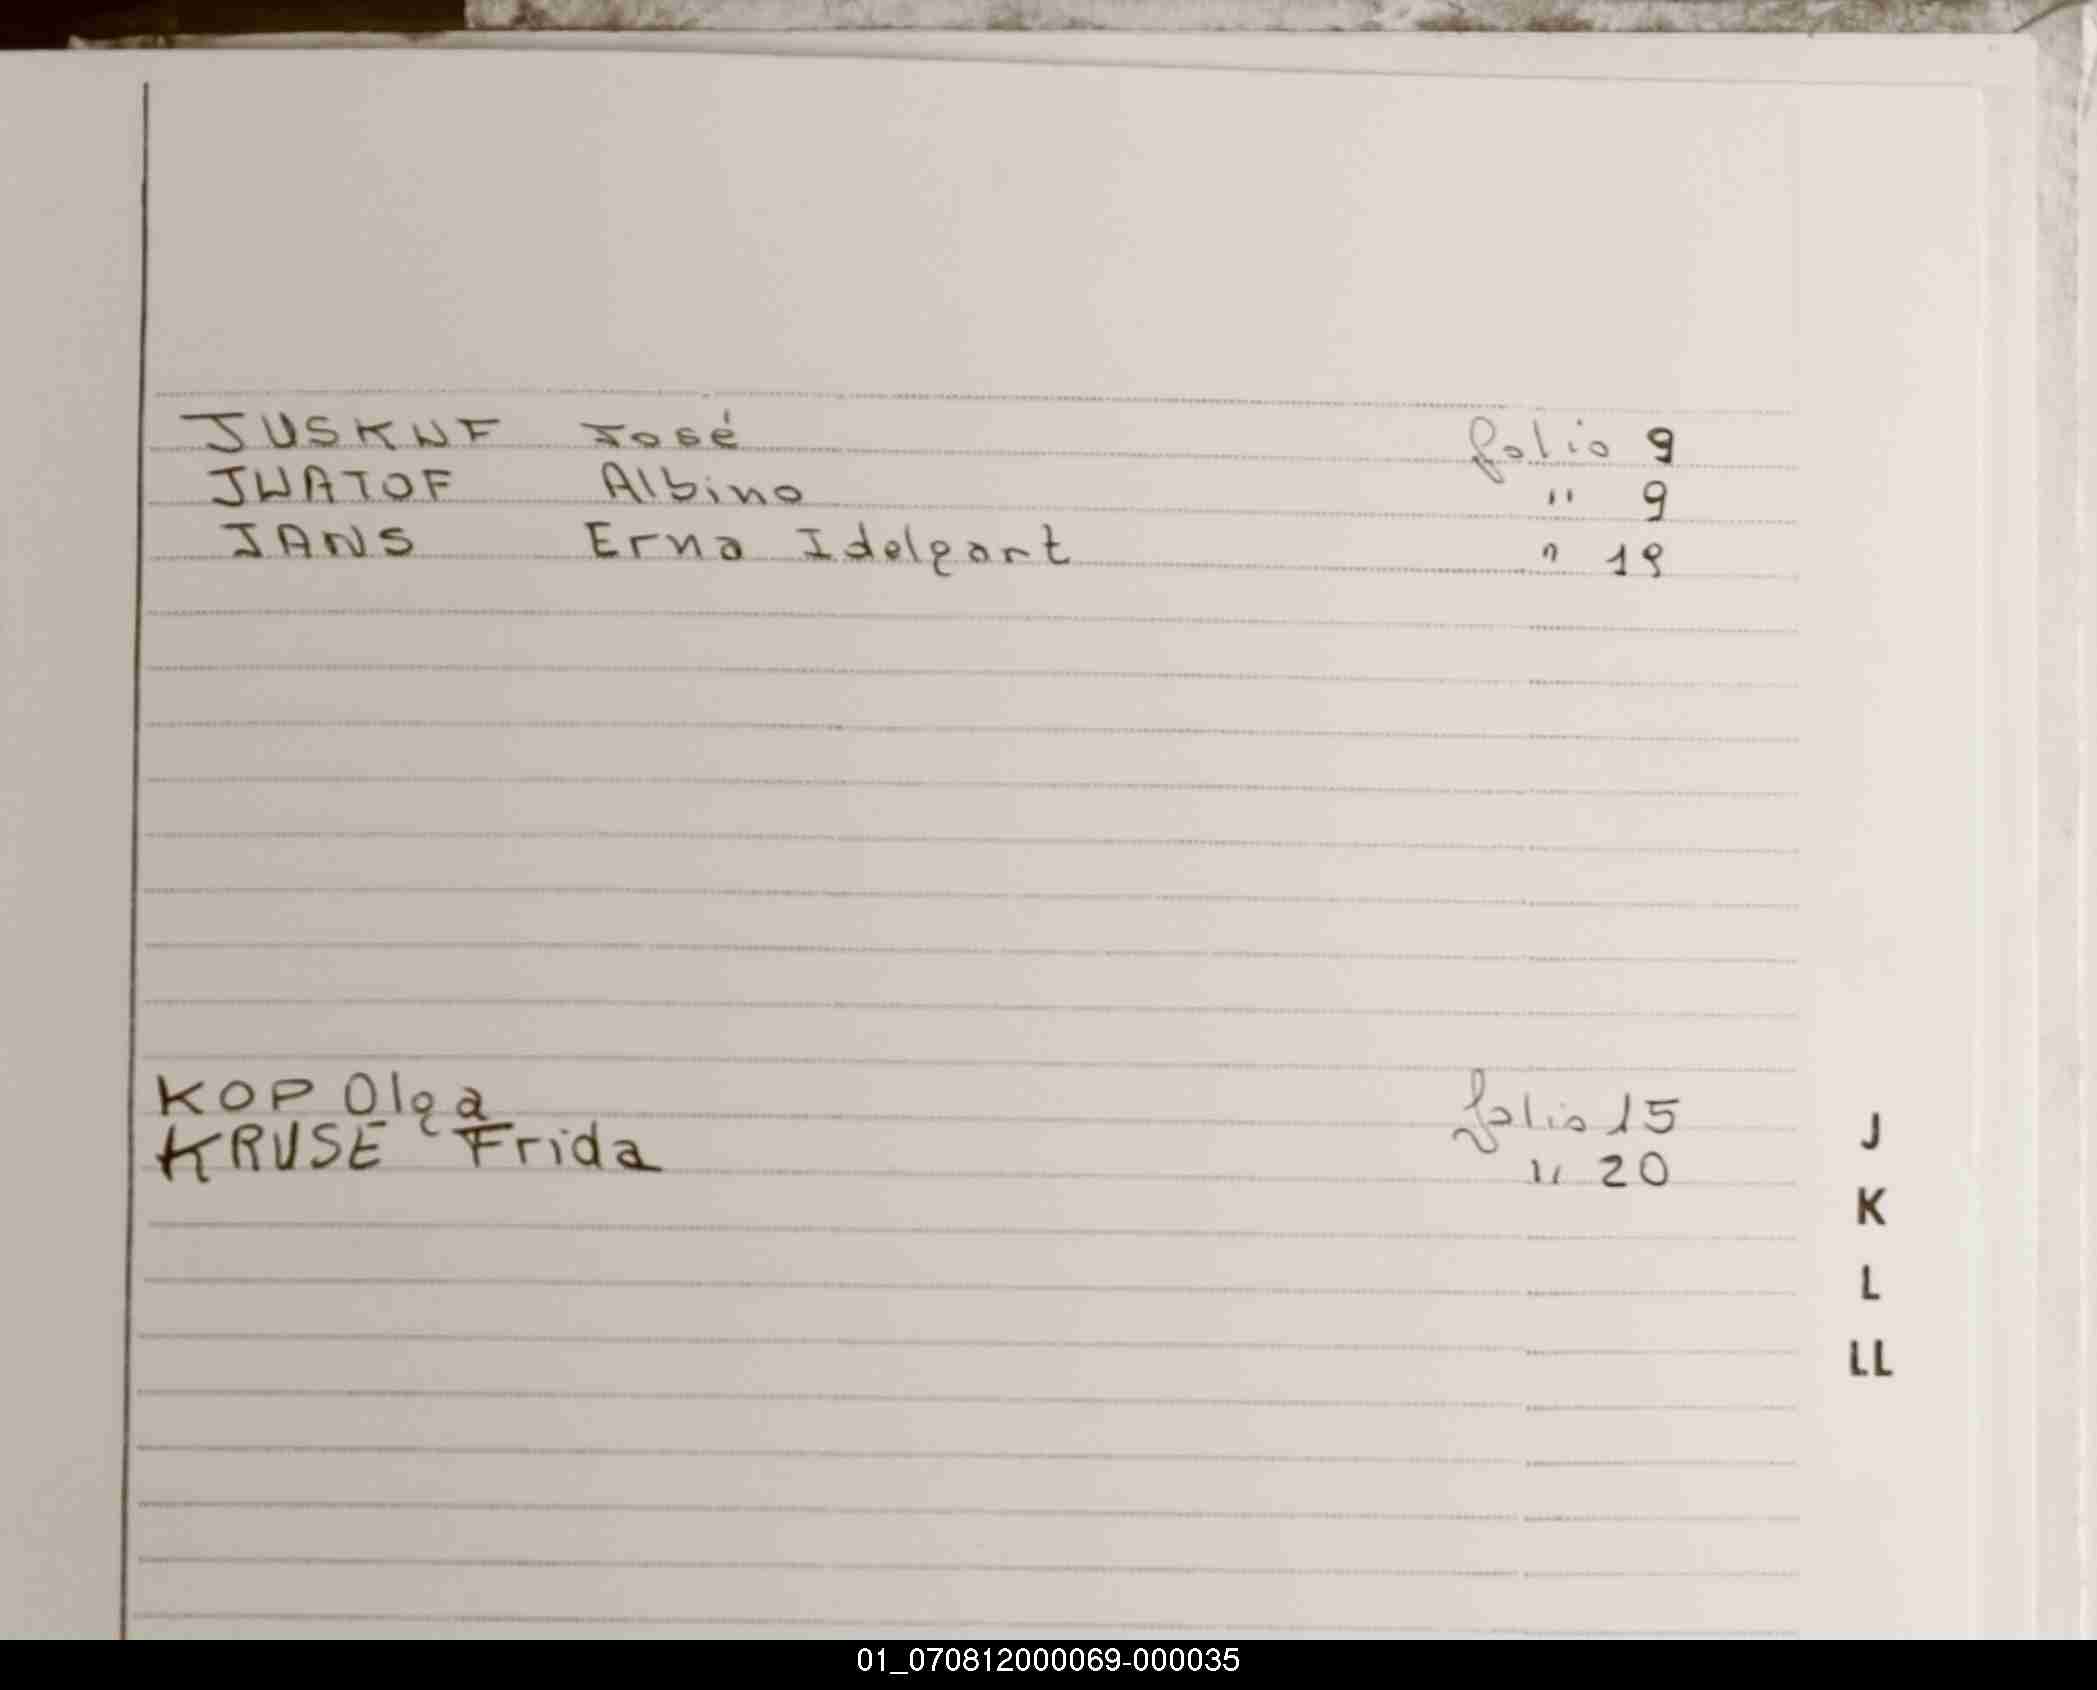 JUSKWF José folio 9
JWATOF Albino " 9
JANS Erna Idelgart " 19
KOP Olga folio 15
KRUSE Frida " 20
J
K
L
LL
01_070812000069-000035